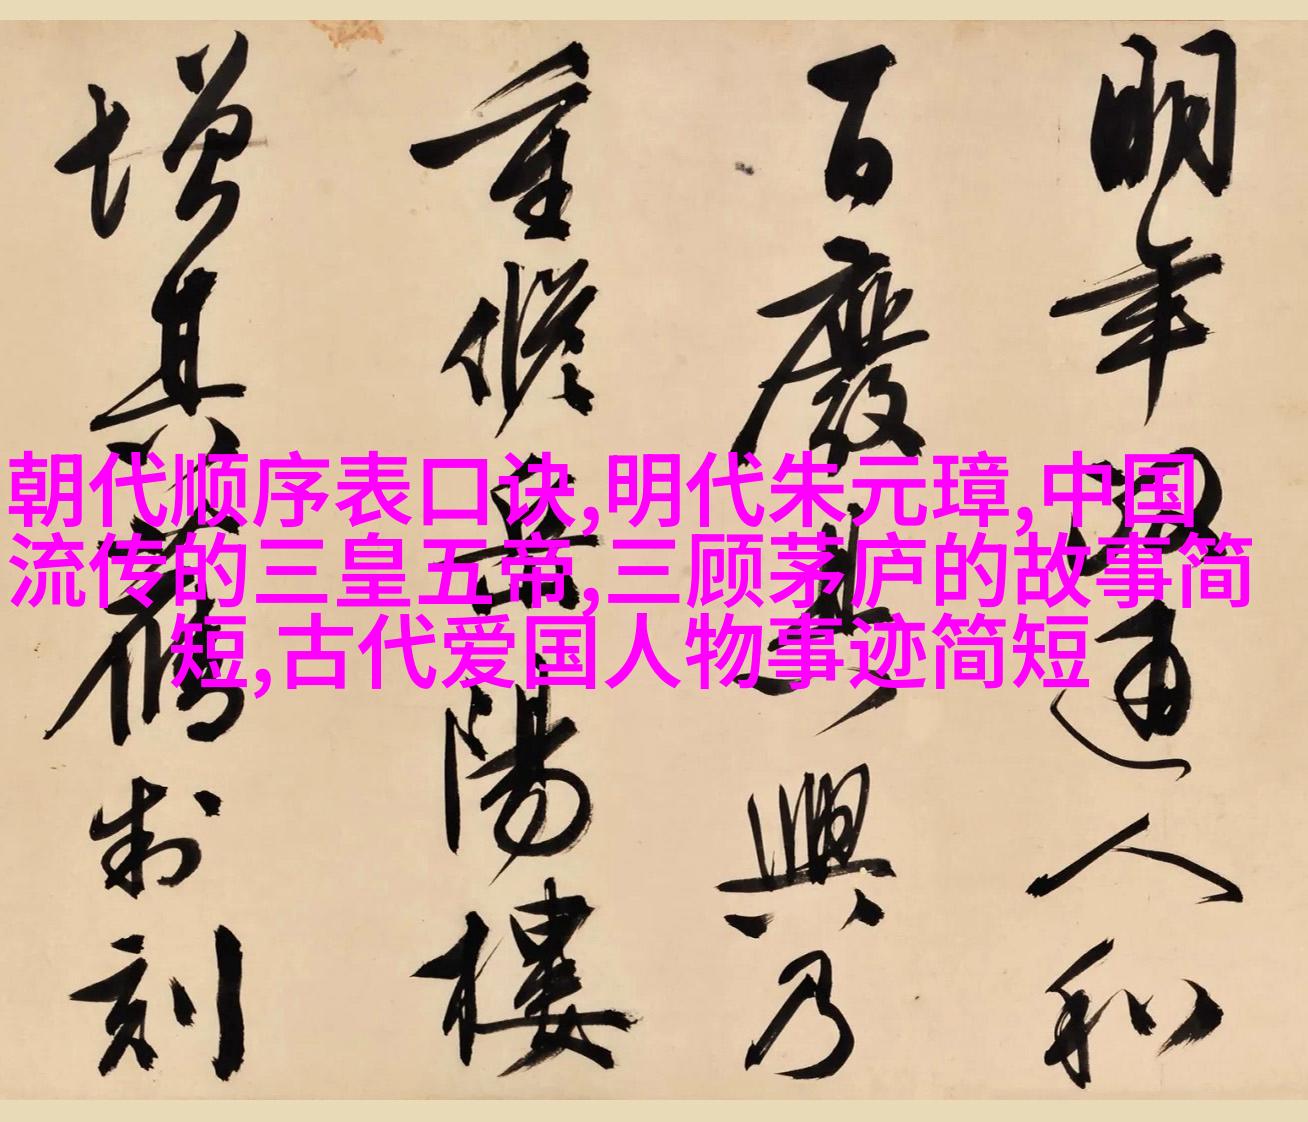 明年通人和
百廢具興乃
重脩岳陽樓
增其舊制刻
朝代顺序表口诀,明代朱元璋,中国
流传的三皇五帝,三顾茅庐的故事简
短,古代爱国人物事迹简短